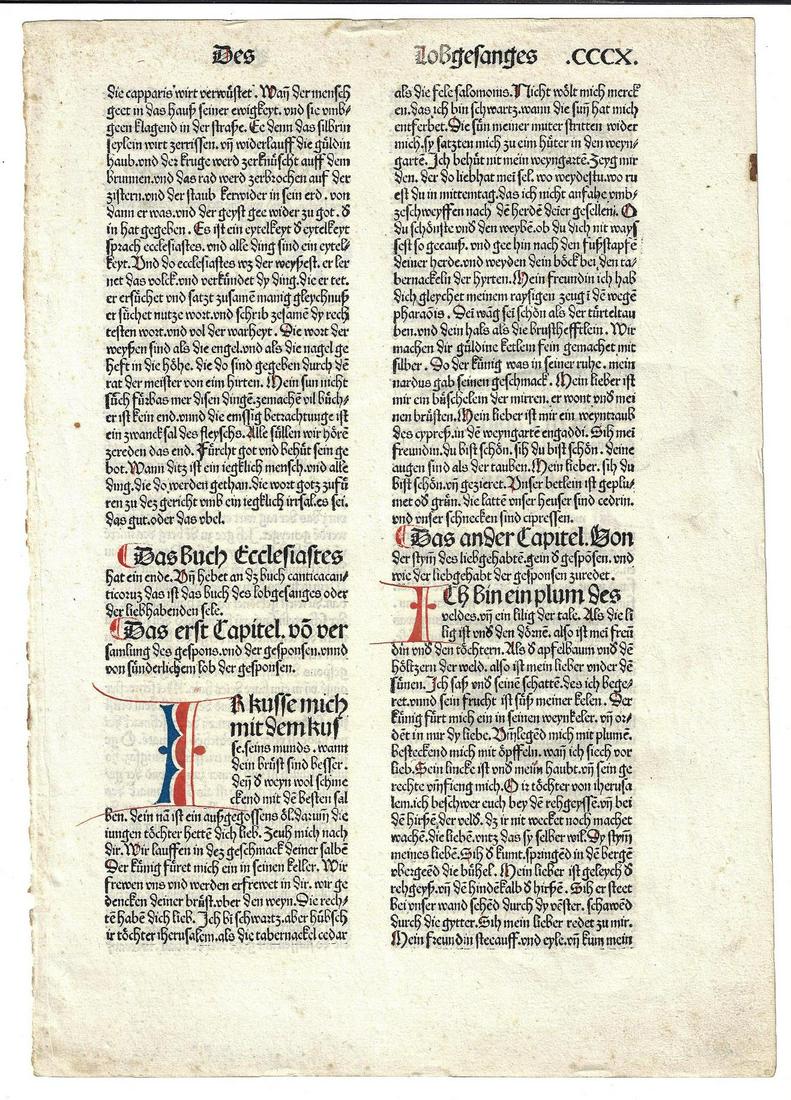 Des
Lobgesanges .CCCX.
die capparis wirt verwüstet. Wañ der mensch
geet in das hauß seiner ewigkeyt. vnd sie vmb-
geen klagend in der straße. Ee denn das silbrin
seylein wirt zerrissen. vñ widerlauff die güldin
haub. vnd der kruge werd zerknüscht auff dem
brunnen. vnd das rad werd zerbrochen auf der
zistern. vnd der staub kerwider in sein erd. von
dann er was. vnd der geyst gee wider zu got. d̕
in hat gegeben. Es ist ein eytelkeyt d̕ eytelkeyt
sprach ecclesiastes. vnd alle ding sind ein eytel-
keyt. Vnd do ecclesiastes wz der weyßest. er ler
net das volck. vnd verkündet dy ding. die er tet.
er ersůchet vnd satzt zusamē manig gleychnuß
er sůchet nutze wort. vnd schrib zesamē dy rech
testen wort. vnd vol der warheyt. Die wort der
weyßen sind als die engel. vnd als die nagel ge
hefft in die höhe. die do sind gegeben durch dē
rat der meister von ein hirten. Mein sun nicht
sůch fürbas mer disen dingē. zemachē vil büch-
er ist kein end. vnnd die emssig betrachtunge ist
ein zwancksal des fleyschs. Alle süllen wir hörē
zereden das end. Fürcht got vnd behüt sein ge
bot. Wann ditz ist ein iegklich mensch. vnd alle
ding. die do werden gethan. die wort gotz zufü
ren zu dez gericht vmb ein iegklich irrsal. es sei.
das gut. oder das vbel.
Das Buch Ecclesiastes
hat ein ende. Vñ hebet an dz buch canticacan-
ticoruz das ist das buch des lobgesanges oder
der liebhabenden sele.
Das erst Capitel. vō ver
samlung des gespons. vnd der gesponsen. vnnd
von sünderlichem lob der gesponsen.
IR kusse mich
mit dem kus
se. seins munds. wann
dein brüst sind besser.
deñ d̕ weyn wol schme
ckend mit dē besten sal
ben. dein nā ist ein außgegossens öl. darum̄ die
iungen töchter hettē dich lieb. Zeuh mich nach
dir. Wir lauffen in dez geschmack deiner salbē
Der künig füret mich ein in seinen keller. Wir
frewen vns vnd werden erfrewet in dir. wir ge
dencken deiner brüst. vber den weyn. Die rech-
tē haben dich lieb. Ich bi schwartz. aber hübsch
ir töchter iherusalem. als die tabernackel cedar
als die fele salomonis. Nicht wölt mich merck
en. das ich bin schwartz. wann die suñ hat mich
entferbet. Die sün meiner muter stritten wider
mich. sy satzten mich zu ein hüter in den weyn-
gartē. Ich behüt nit mein weyngartē. Zeyg mir
den. der do liebhat mei sel. wo weydestu. wo ru
est du in mittemtag. das ich nicht anfahe vmb-
zeschweyffen nach dē herdē deier gesellen. O
du schönste vnd den weybē. ob du dich nit ways
sest so gee auß. vnd gee hin nach den fußstapfē
deiner herde. vnd weyden dein böck bei den ta-
bernackeln der hyrten. Mein freundin ich hab
dich gleychet meinem raysigen zeug ī dē wegē
pharaōis. Dei wāg sēi schön als der türteltau
ben. vnd dein hals als die brusthefftlein. Wir
machen dir güldine ketlein fein gemachet mit
silber. Do der künig was in seiner ruhe. mein
nardus gab seinen geschmack. Mein lieber ist
mir ein büschelein der mirren. er wont vnd mei
nen brüsten. Mein lieber ist mir ein weyntraub
des cypreß. in dē weyngartē engaddi. Sih mei
freundin. du bist schön. sih du bist schön. deine
augen sind als der tauben. Mein lieber. sih du
bist schön. vñ gezieret. Vnser betlein ist geplu-
met od̕ grün. die lattē vnser heuser sind cedrin.
vnd vnser schnecken sind cipressen.
Das ander Capitel. Von
der stym̄ des liebgehabtē. gein d̕ gespōsen. vnd
wie der liebgehabt der gesponsen zuredet.
ICh bin ein plum des
veldes. vñ ein lilig der tale. Als die li
lig ist vnd̕ den dōnē. also ist mei freū
din vnd̕ den töchtern. Als d̕ apfelbaum vnd̕ dē
höltzern der weld. also ist mein lieber vnder dē
sünen. Ich saß vnd̕ seinē schattē. des ich bege-
ret. vnnd sein frucht ist süß meiner kelen. Der
künig fürt mich ein in seinen weynkeler. vñ or-
dēt in mir dy liebe. Vm̄legēd mich mit plumē.
besteckend mich mit öpffeln. wañ ich siech vor
lieb. Sein lincke ist vnd̕ mein haubt. vñ sein ge
rechte vm̄fieng mich. O ir töchter von iherusa
lem. ich beschwer euch bey dē rehgeyssē. vñ bei
dē hirßē. der veld. dz ir nit wecket noch machet
wachē. die liebē. vntz das sy selber wil. Dy stym̄
meines liebē. Sih d̕ kumt. springēd in dē bergē
vbergeēd die bühel. Mein lieber ist geleych d̕
rehgeyß. vñ dē hindēkalb d̕ hirßē. Sih er steet
bei vnser wand schēd durch dy vēster. schawēd
durch die gytter. Sih mein lieber redet zu mir.
Mein freundin stee auff. vnd eyle. vñ kum mein